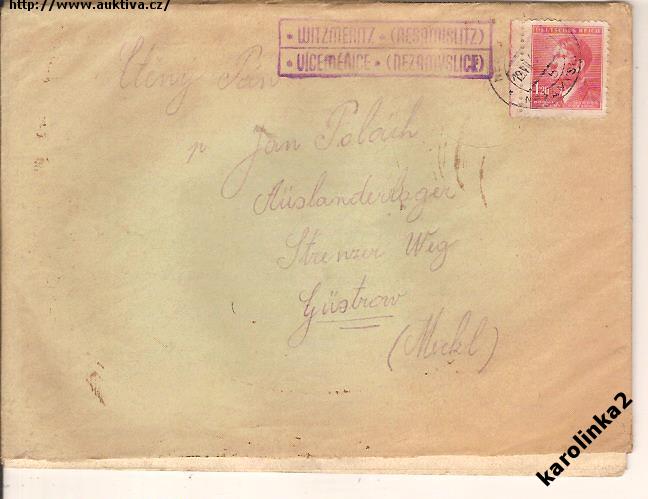 http://www.auktiva.cz/
* WITZMERITZ * (NESAMISLITZ)
* VICEMĚŘICE * (NEZAMYSLICE)
DEUTSCHES REICH
1.20
Ctěný Pán
p Jan Polách
Ausländerlager
Strenzer Weg
Güstrow
(Meckl)
karolinka2